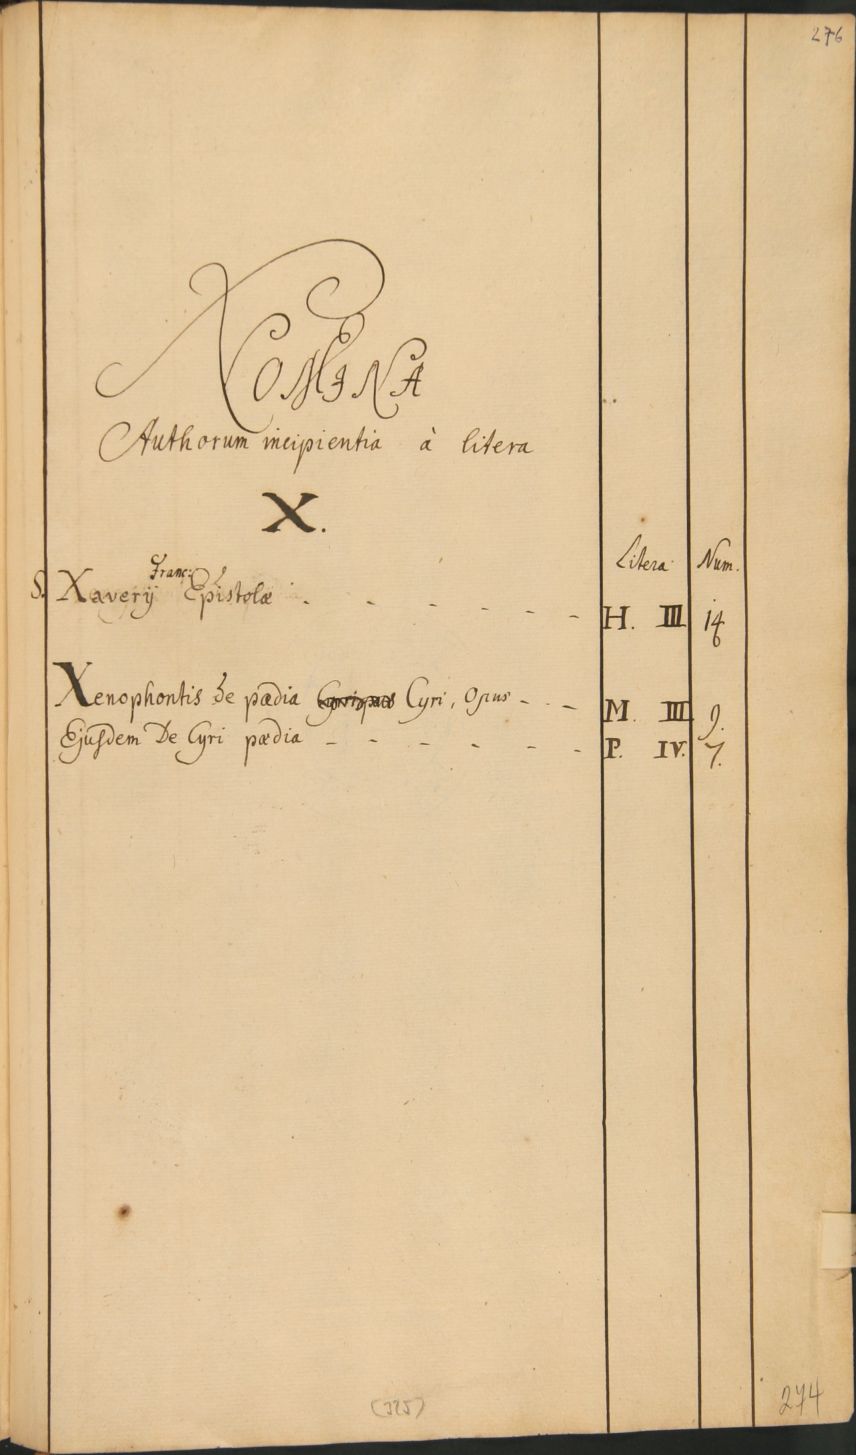 276
NOMINA
Authorum incipientia à litera
X.
Litera Num.
Franc:
S. Xaverij Epistolæ - - - - - - H. III 14
6
Xenophontis De pædia Cyri, Opus - . - M. III 9.
Ejusdem De Cyri pædia - - - - - - P. IV. 7.
(325)
274